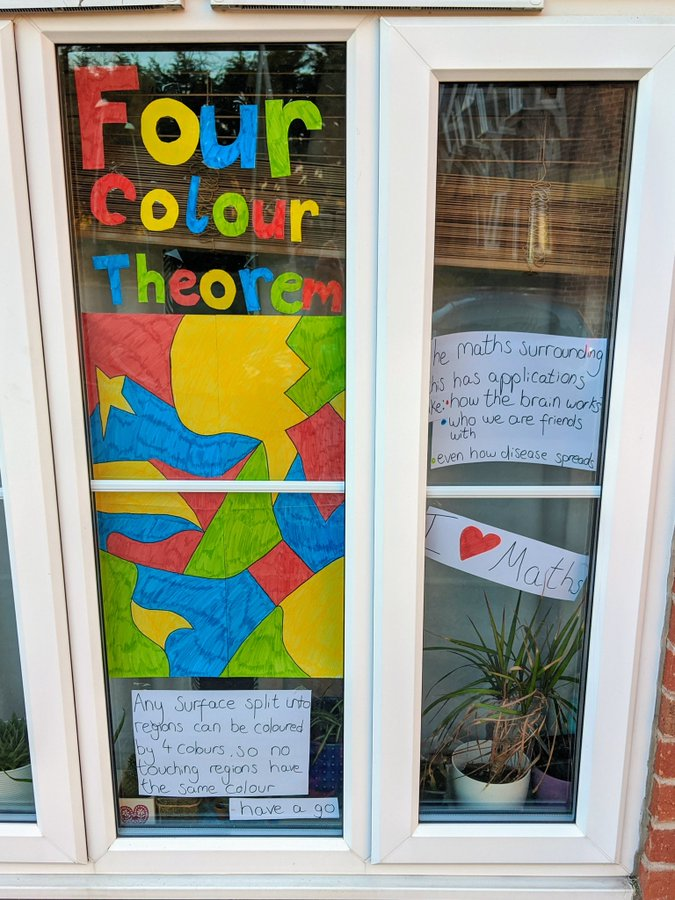 Four
Colour
Theorem
Any surface split into
regions can be coloured
by 4 colours, so no
touching regions have
the same colour
- have a go
he maths surrounding
his has applications
ke: •how the brain works
•who we are friends
with
•even how disease spreads
I ❤ Maths